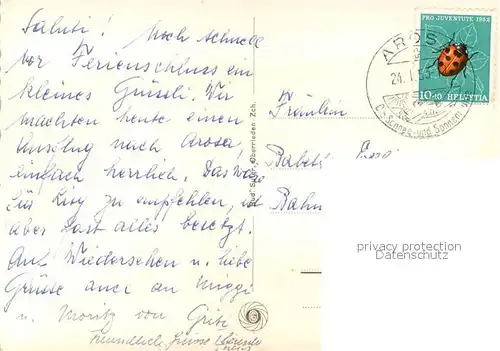 Saluti! Noch schnell
vor Ferienschluss ein
kleines Grüssli. Wir
machten heute einen
Ausflug nach Arosa,
einfach herrlich. Das wäre
für zu empfehlen, ist
aber fast alles besetzt.
Auf Wiedersehen u. liebe
Grüsse auch an Miggi
u. Moritz von Griti
Freundliche Grüsse
Oberrieden Zch.
Fräulein
Babeti
Bahn
PRO JUVENTUTE 1952
10+10 HELVETIA
AROSA
24.I.53
Schnee- und Sonnen
privacy protection
Datenschutz